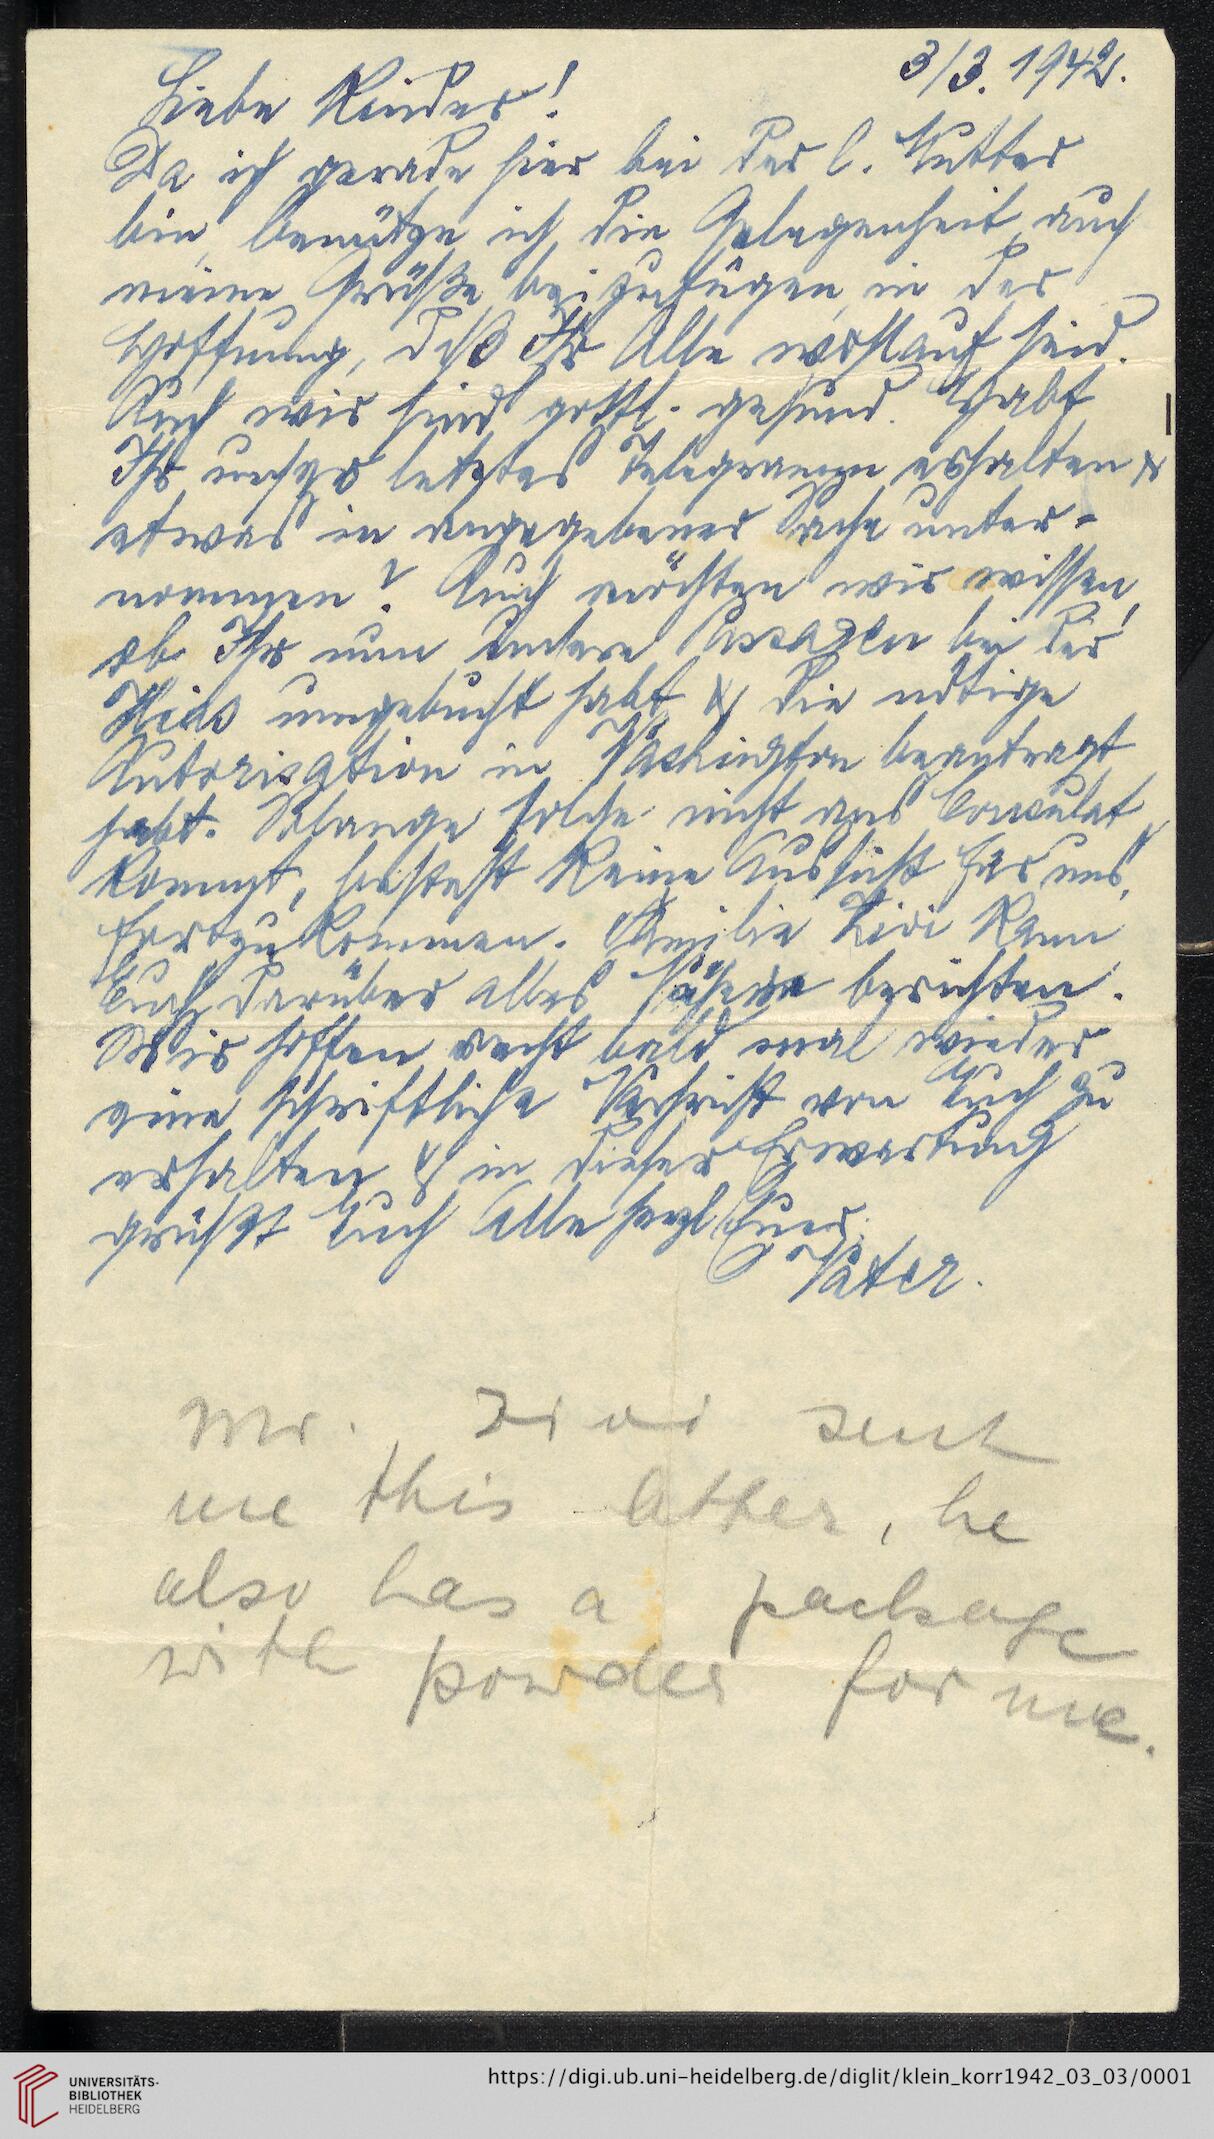 3/3. 1942.
Liebe Kinder!
Da ich gerade hier bei der l. Mutter
bin, benütze ich die Gelegenheit auch
meine Grüße beizufügen in der
Hoffnung, daß Ihr Alle wohlauf seid.
Auch wir sind gottl. gesund. Habt
Ihr unser letztes Telegramm erhalten &
etwas in angegebener Sache unter-
nommen? Auch möchten wir wissen,
ob Ihr nun unsere Passagen bei der
Hias umgebucht habt & die nötige
Autorisation in Washington beantragt
habt. Solange solche nicht ans Consulat
kommt, besteht keine Aussicht für uns,
fortzukommen. Familie Zivi kann
Euch darüber alles Nähere berichten.
Wir hoffen recht bald mal wieder
eine schriftliche Nachricht von Euch zu
erhalten & in dieser Erwartung
grüßt Euch Alle herzl. Euer
Vater.
Mr. Zivi sent
me this letter, he
also has a package
with powder for me.
UNIVERSITÄTS-
BIBLIOTHEK
HEIDELBERG
https://digi.ub.uni-heidelberg.de/diglit/klein_korr1942_03_03/0001